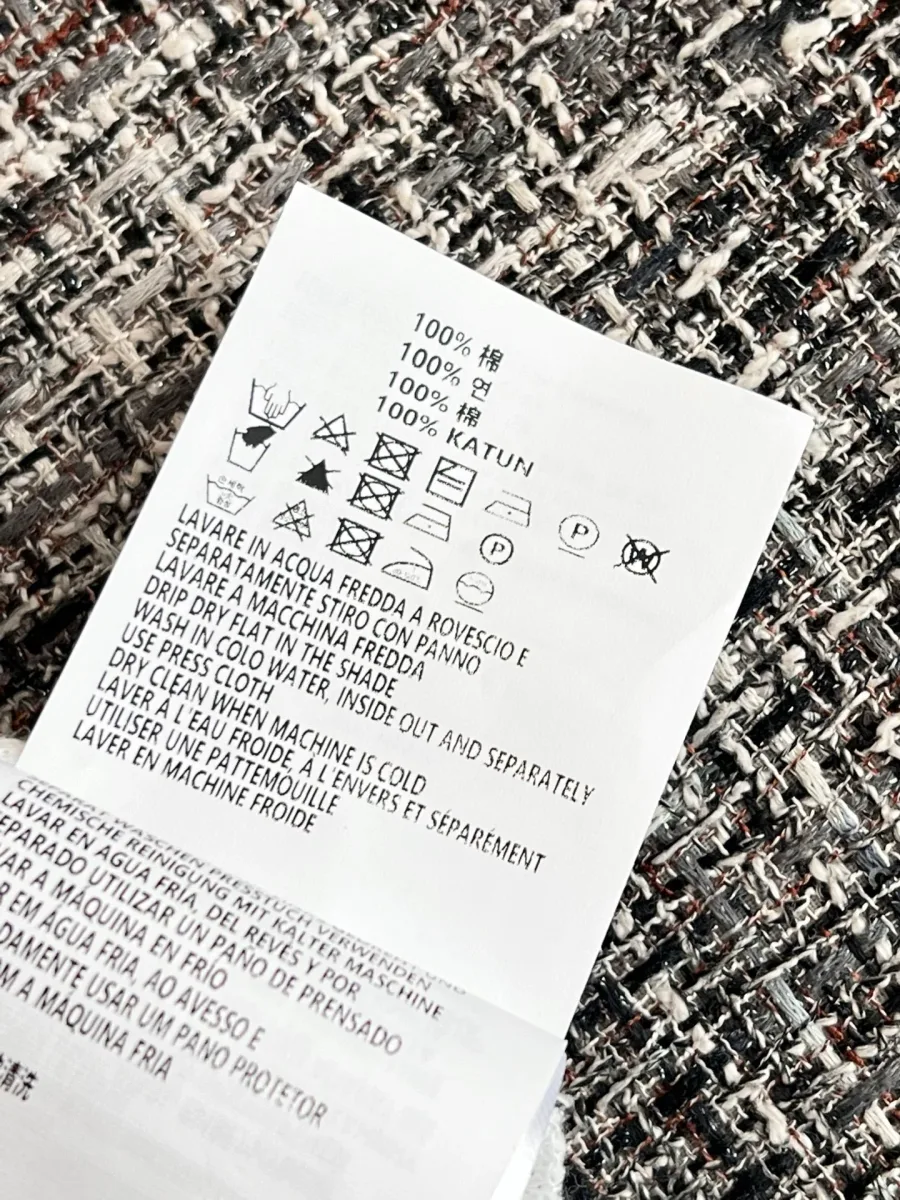 100% 棉
100% 면
100% 棉
100% KATUN
P
P
LAVARE IN ACQUA FREDDA A ROVESCIO E
SEPARATAMENTE STIRO CON PANNO
LAVARE A MACCHINA FREDDA
DRIP DRY FLAT IN THE SHADE
WASH IN COLO WATER, INSIDE OUT AND SEPARATELY
USE PRESS CLOTH
DRY CLEAN WHEN MACHINE IS COLD
LAVER À L'EAU FROIDE, À L'ENVERS ET SÉPARÉMENT
UTILISER UNE PATTEMOUILLE
LAVER EN MACHINE FROIDE
WASCHEN PRESSTUCH VERWENDEN
CHEMISCHE REINIGUNG MIT KALTER MASCHINE
LAVAR EN AGUA FRÍA, DEL REVÉS Y POR
SEPARADO UTILIZAR UN PAÑO DE PRENSADO
AR A MÁQUINA EN FRÍO
EM ÁGUA FRIA, AO AVESSO E
DAMENTE USAR UM PANO PROTETOR
M A MÁQUINA FRIA
清洗